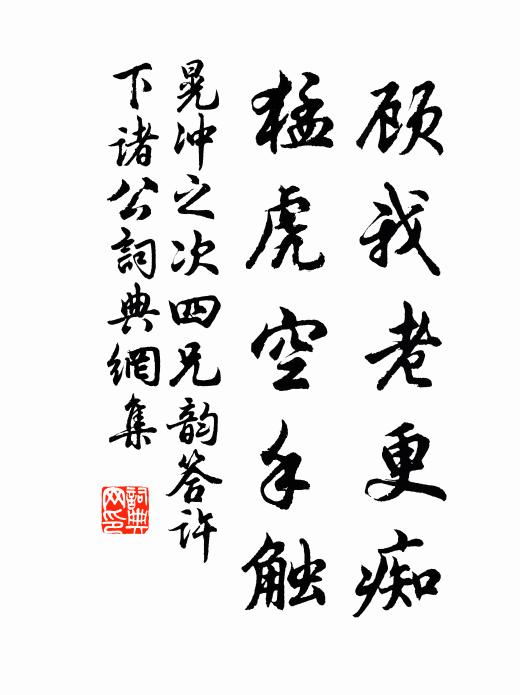 顾我老更痴
猛虎空手触
晃冲之次四兄韵答许
下诸公詞典網集
詞典网印